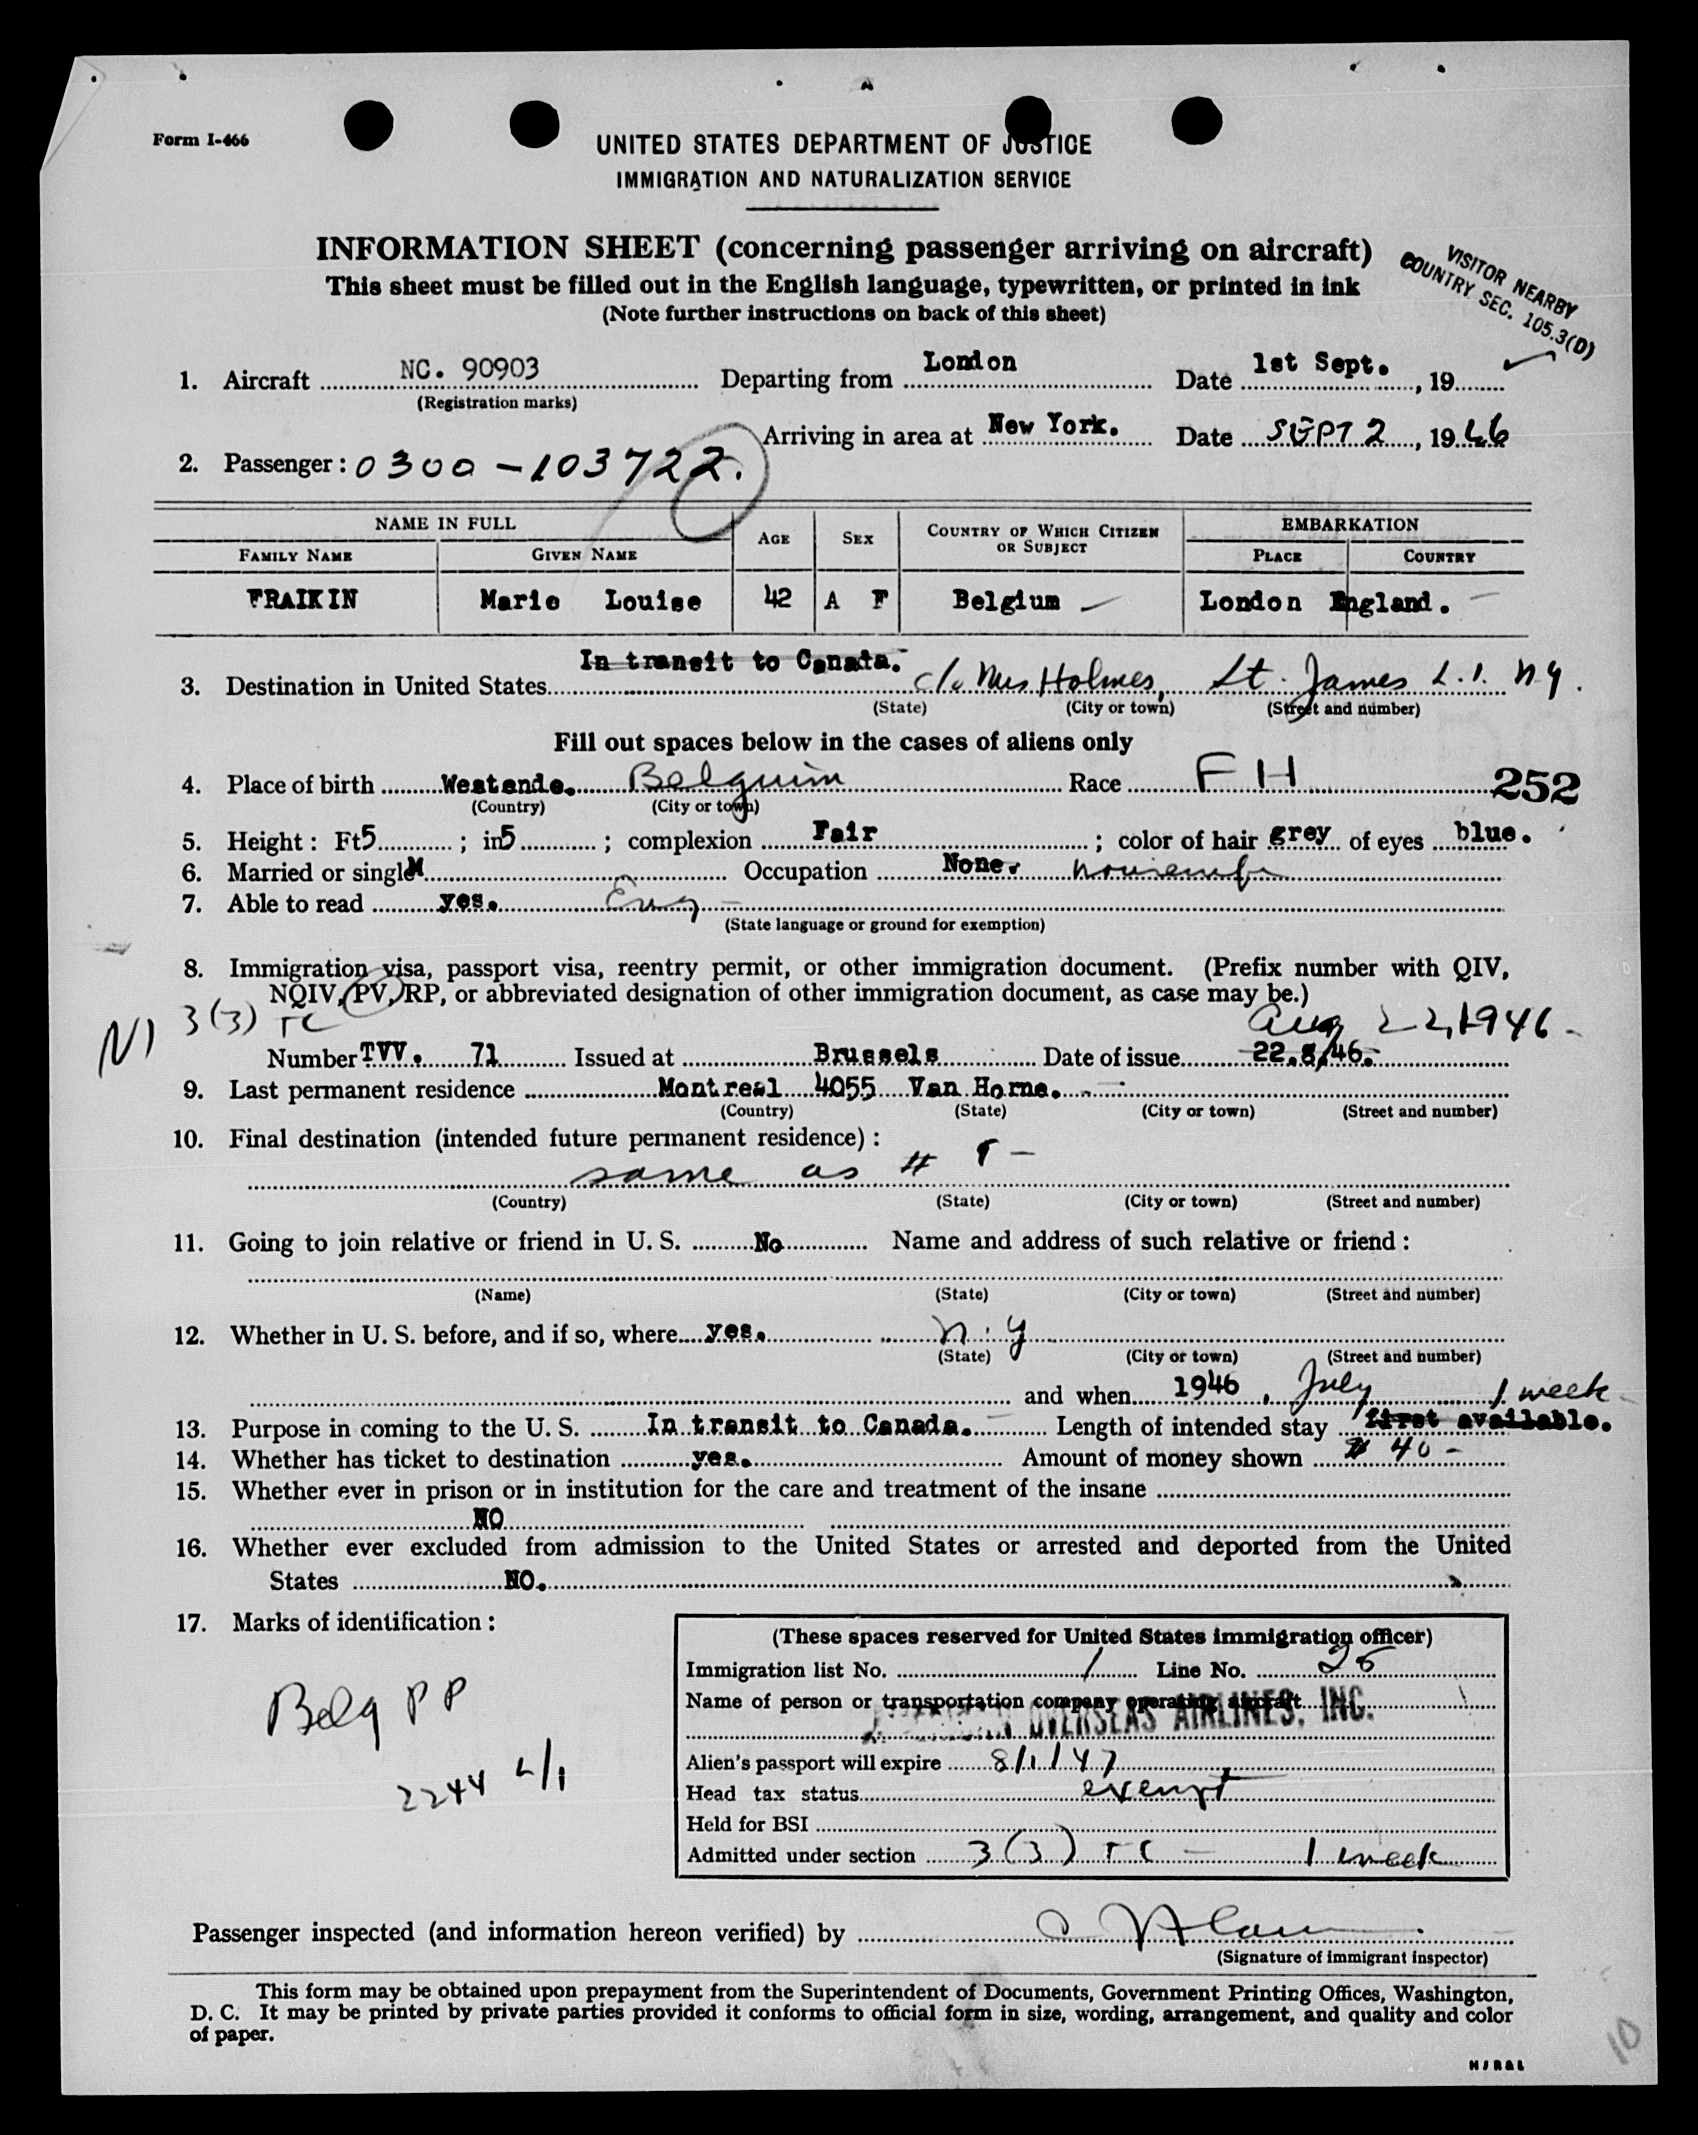 Form I-466
UNITED STATES DEPARTMENT OF JUSTICE
IMMIGRATION AND NATURALIZATION SERVICE
INFORMATION SHEET (concerning passenger arriving on aircraft)
This sheet must be filled out in the English language, typewritten, or printed in ink
(Note further instructions on back of this sheet)
VISITOR NEARBY
COUNTRY SEC. 105.3(D)
1. Aircraft NC. 90903 Departing from London Date 1st Sept. , 19
(Registration marks)
Arriving in area at New York. Date SEPT 2 , 1946
2. Passenger: 0300-103722.
NAME IN FULL AGE SEX COUNTRY OF WHICH CITIZEN OR SUBJECT EMBARKATION
FAMILY NAME GIVEN NAME PLACE COUNTRY
FRAIKIN Marie Louise 42 A F Belgium London England.
In transit to Canada.
3. Destination in United States c/o Mrs Holmes, St. James L.I. N.Y.
(State) (City or town) (Street and number)
Fill out spaces below in the cases of aliens only
4. Place of birth Westende. Belguim Race F H 252
(Country) (City or town)
5. Height: Ft5 ; in5 ; complexion Fair ; color of hair grey of eyes blue.
6. Married or single M Occupation None. housewife
7. Able to read yes. Eng -
(State language or ground for exemption)
8. Immigration visa, passport visa, reentry permit, or other immigration document. (Prefix number with QIV,
NQIV, PV, RP, or abbreviated designation of other immigration document, as case may be.)
3(3) TC Aug 22, 1946 -
Number TVV. 71 Issued at Brussels Date of issue 22.8.46.
9. Last permanent residence Montreal 4055 Van Horne.
(Country) (State) (City or town) (Street and number)
10. Final destination (intended future permanent residence):
same as #
(Country) (State) (City or town) (Street and number)
11. Going to join relative or friend in U. S. No Name and address of such relative or friend:
(Name) (State) (City or town) (Street and number)
12. Whether in U. S. before, and if so, where yes. n.y
(State) (City or town) (Street and number)
and when 1946 , July 1 week
13. Purpose in coming to the U. S. In transit to Canada. Length of intended stay first available.
14. Whether has ticket to destination yes. Amount of money shown $ 40 -
15. Whether ever in prison or in institution for the care and treatment of the insane
NO
16. Whether ever excluded from admission to the United States or arrested and deported from the United
States NO.
17. Marks of identification:
Belg PP
2244
(These spaces reserved for United States immigration officer)
Immigration list No. 1 Line No. 26
Name of person or transportation company operating aircraft
AMERICAN OVERSEAS AIRLINES, INC.
Alien's passport will expire 8/1/47
Head tax status exempt
Held for BSI
Admitted under section 3(3) TC - 1 week
Passenger inspected (and information hereon verified) by
(Signature of immigrant inspector)
This form may be obtained upon prepayment from the Superintendent of Documents, Government Printing Offices, Washington,
D. C. It may be printed by private parties provided it conforms to official form in size, wording, arrangement, and quality and color
of paper.
10